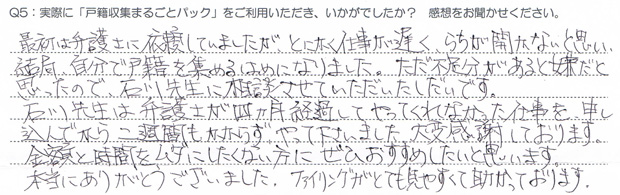 Q5：実際に「戸籍収集まるごとパック」をご利用いただき、いかがでしたか？ 感想をお聞かせください。
最初は弁護士に依頼していましたが とにかく仕事が遅く、らちが開かないと思い、
結局、自分で戸籍を集めるはめになりました。ただ不足分があると嫌だと
思ったので、石川先生に相談させていただいたしだいです。
石川先生は弁護士が四ヶ月経過してやってくれなかった仕事を、申し
込んでから二週間もかからずやって下さいました。大変感謝しております。
金額と時間をムダにしたくない方に ぜひおすすめしたいと思います。
本当にありがとうございました。ファイリングがとても見やすくて助かっております。